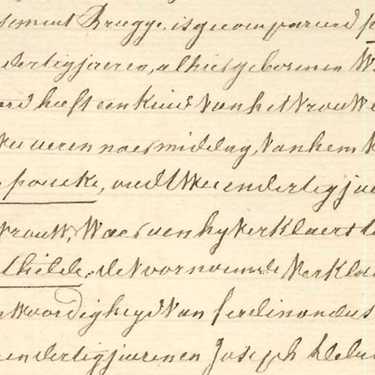 sement Brugge, is gecompareerd
dertig jaeren, alhier geboren
heeft een Kind van het Vrouwe
ueren naer middag, van hem
poucke, oudt twee en dertig jae
vrouw, Waer van hy verklaert
thilde, de voornoemde verkla
woordigheyd van ferdinandus
en dertig jaeren Joseph